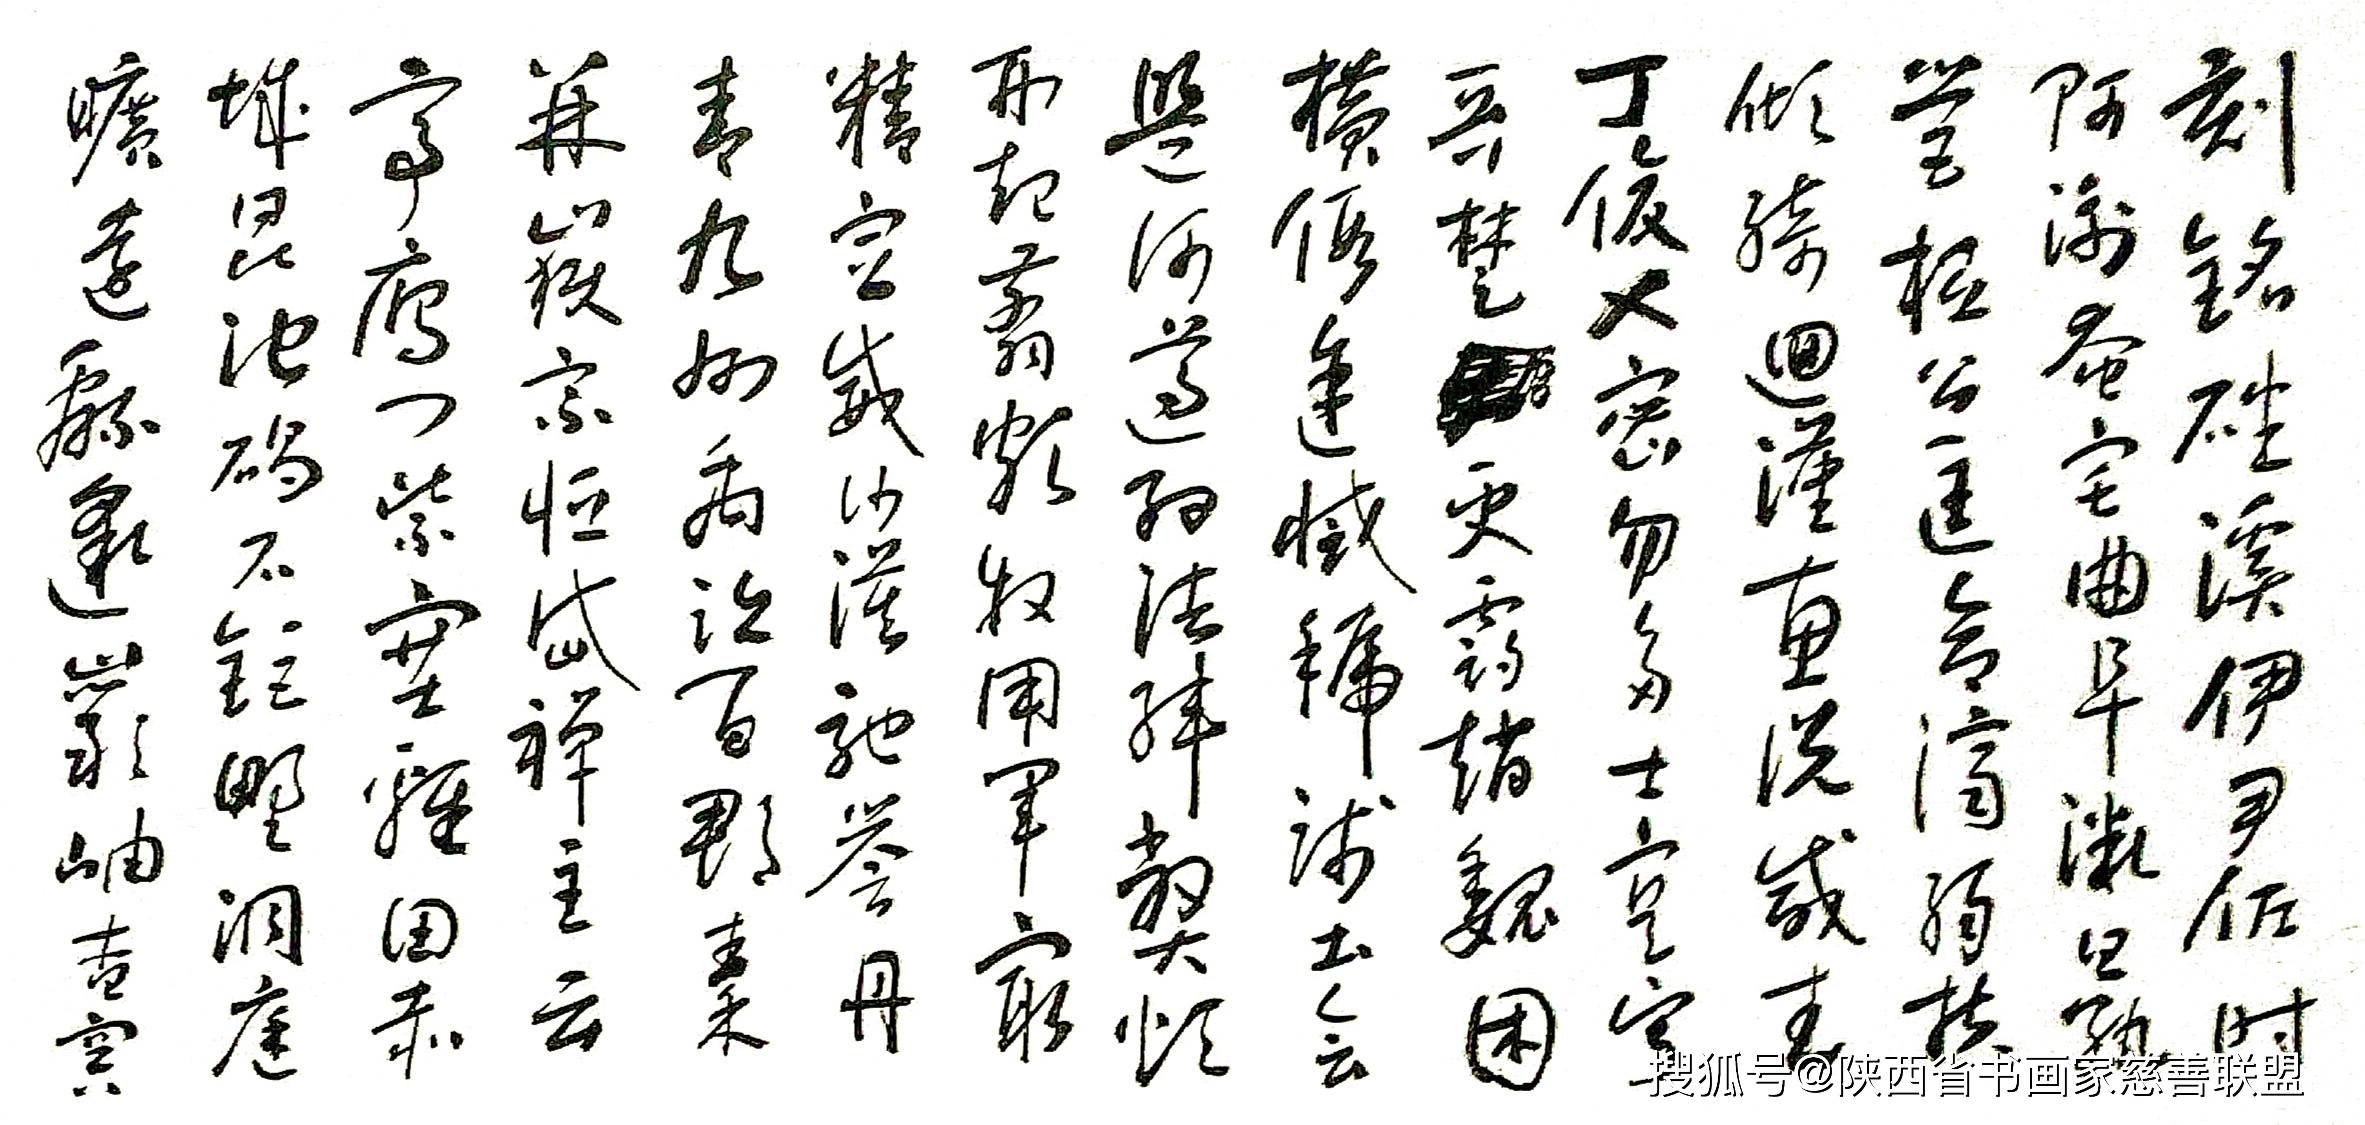 刻銘磻溪伊尹佐时
阿衡奄宅曲阜微旦孰
营桓公匡合濟弱扶
倾绮迴漢惠说感武
丁俊乂密勿多士寔宁
晋楚更霸趙魏困
横假途滅虢践土会
盟何遵约法韩弊烦
刑起翦颇牧用军最
精宣威沙漠驰誉丹
青九州禹迹百郡秦
并嶽宗恒岱禅主云
亭雁门紫塞雞田赤
城昆池碣石钜野洞庭
曠遠綿邈巖岫杳冥
搜狐号@陕西省书画家慈善联盟